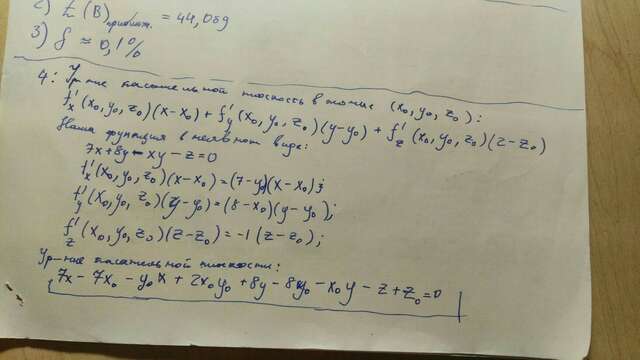 2) z (B) приближ. = 44,059
3) δ ≈ 0,1%
4: Ур-ние касательной плоскость в точке (x₀, y₀, z₀):
f'ₓ (x₀, y₀, z₀)(x-x₀) + f'ᵧ (x₀, y₀, z₀)(y-y₀) + f'z (x₀, y₀, z₀)(z-z₀)
Наша функция в неявном виде:
7x+8y-xy-z=0
f'ₓ (x₀, y₀, z₀)(x-x₀) = (7-y₀)(x-x₀);
f'ᵧ (x₀, y₀, z₀)(y-y₀) = (8-x₀)(y-y₀);
f'z (x₀, y₀, z₀)(z-z₀) = -1(z-z₀);
Ур-ние касательной плоскости:
7x - 7x₀ - y₀x + 2x₀y₀ + 8y - 8y₀ - x₀y - z + z₀ = 0